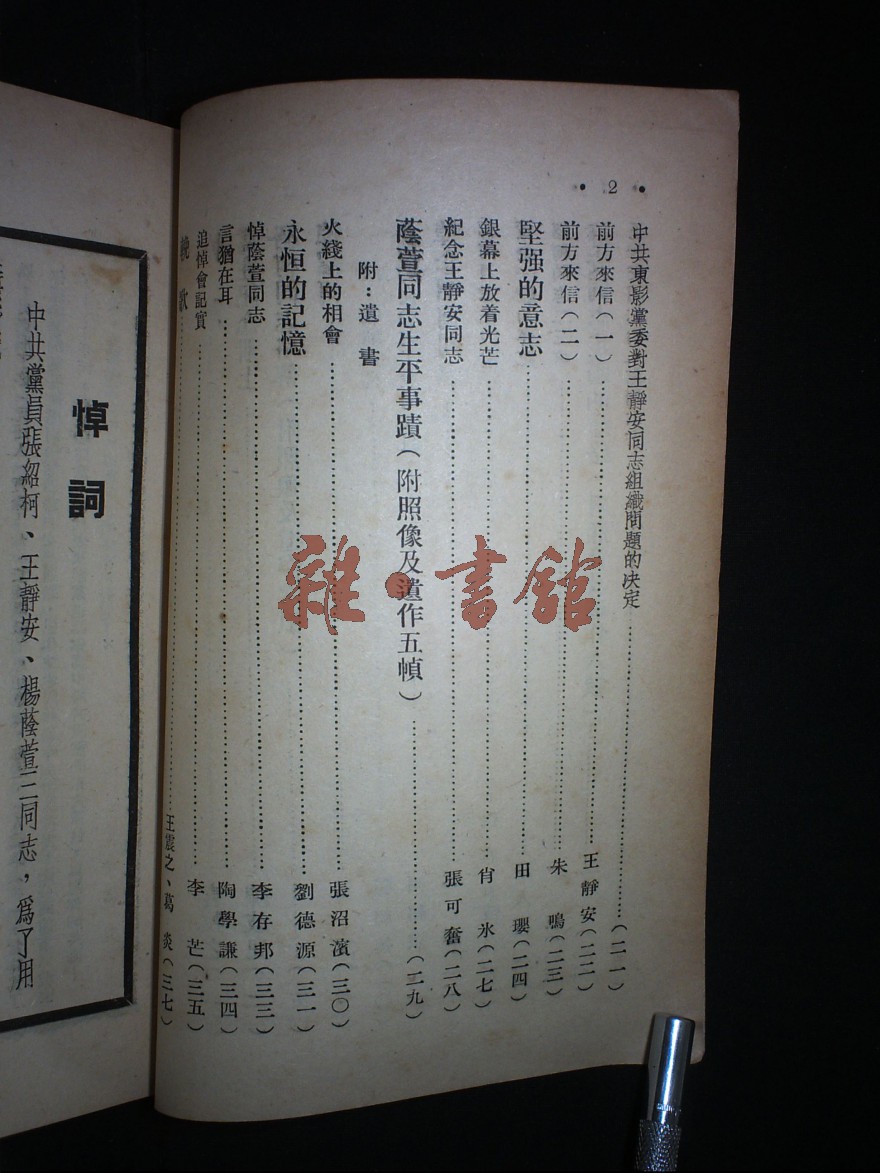 • 2 •
中共東影黨委對王靜安同志組織問題的决定……(二一)
前方來信(一)……王靜安(二二)
前方來信(二)……朱鳴(二三)
堅强的意志……田瓔(二四)
銀幕上放着光芒……肖氷(二七)
紀念王靜安同志……張可奮(二八)
蔭萱同志生平事蹟(附照像及遺作五幀)……(二九)
附:遺書
火綫上的相會……張沼濱(三〇)
永恒的記憶……劉德源(三一)
悼蔭萱同志……李存邦(三三)
言猶在耳……陶學謙(三四)
追悼會記實……李芒(三五)
輓歌……王震之、葛炎(三七)
悼詞
中共黨員張紹柯、王靜安、楊蔭萱三同志,爲了用
雜·書館